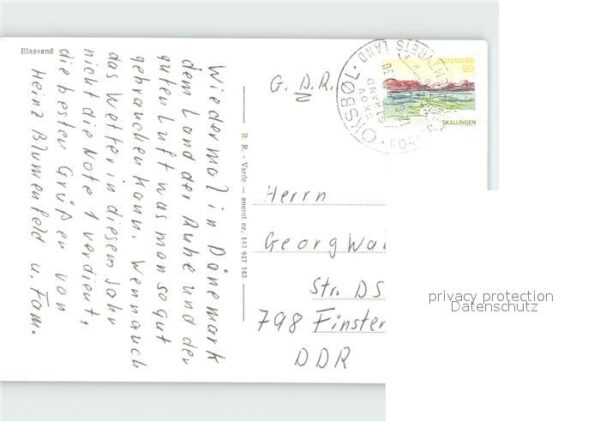 Blaavand
Wieder mal in Dänemark
dem Land der Ruhe und der
guten Luft was man so gut
gebrauchen kann. Wenn auch
das Wetter in diesem Jahr
nicht die Note 1 verdient,
die besten Grüße von
Heinz Blumenfeld u. Fam.
R. R. - Varde - eneret nr.
G. D. R.
OKSBØL
DANMARK
90
SKALLINGEN
Herrn
Georg Wa
Str. DS
798 Finster
DDR
privacy protection
Datenschutz